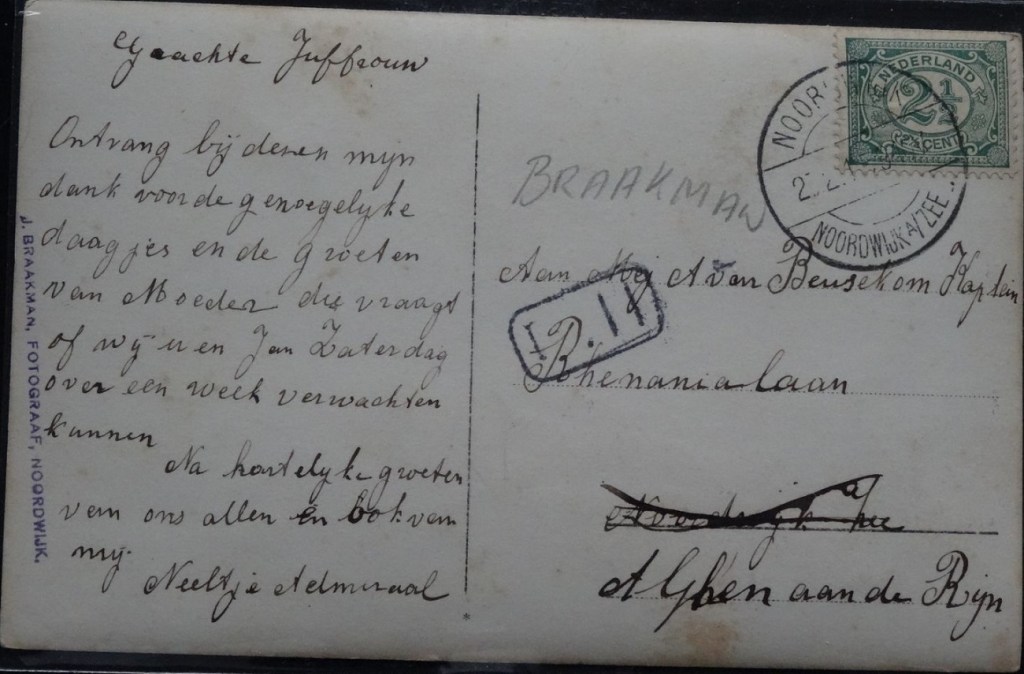 Geachte Juffrouw
Ontvang bij deren myn
dank voor de genoegelyke
daagjes en de groeten
van Moeder die vraagt
of wÿ u en Jan Zaterdag
over een week verwachten
kunnen
Na hartelyke groeten
van ons allen en ook van
my.
Neeltje Admiraal
J. BRAAKMAN, FOTOGRAAF, NOORDWIJK.
NEDERLAND
2½
2½ CENT
NOORDWIJK A/ZEE
BRAAKMAN
Aan Mej A van Beusekom Kaptein
Rhenania laan
Noordwijk a/ Zee
Alphen aan de Rijn